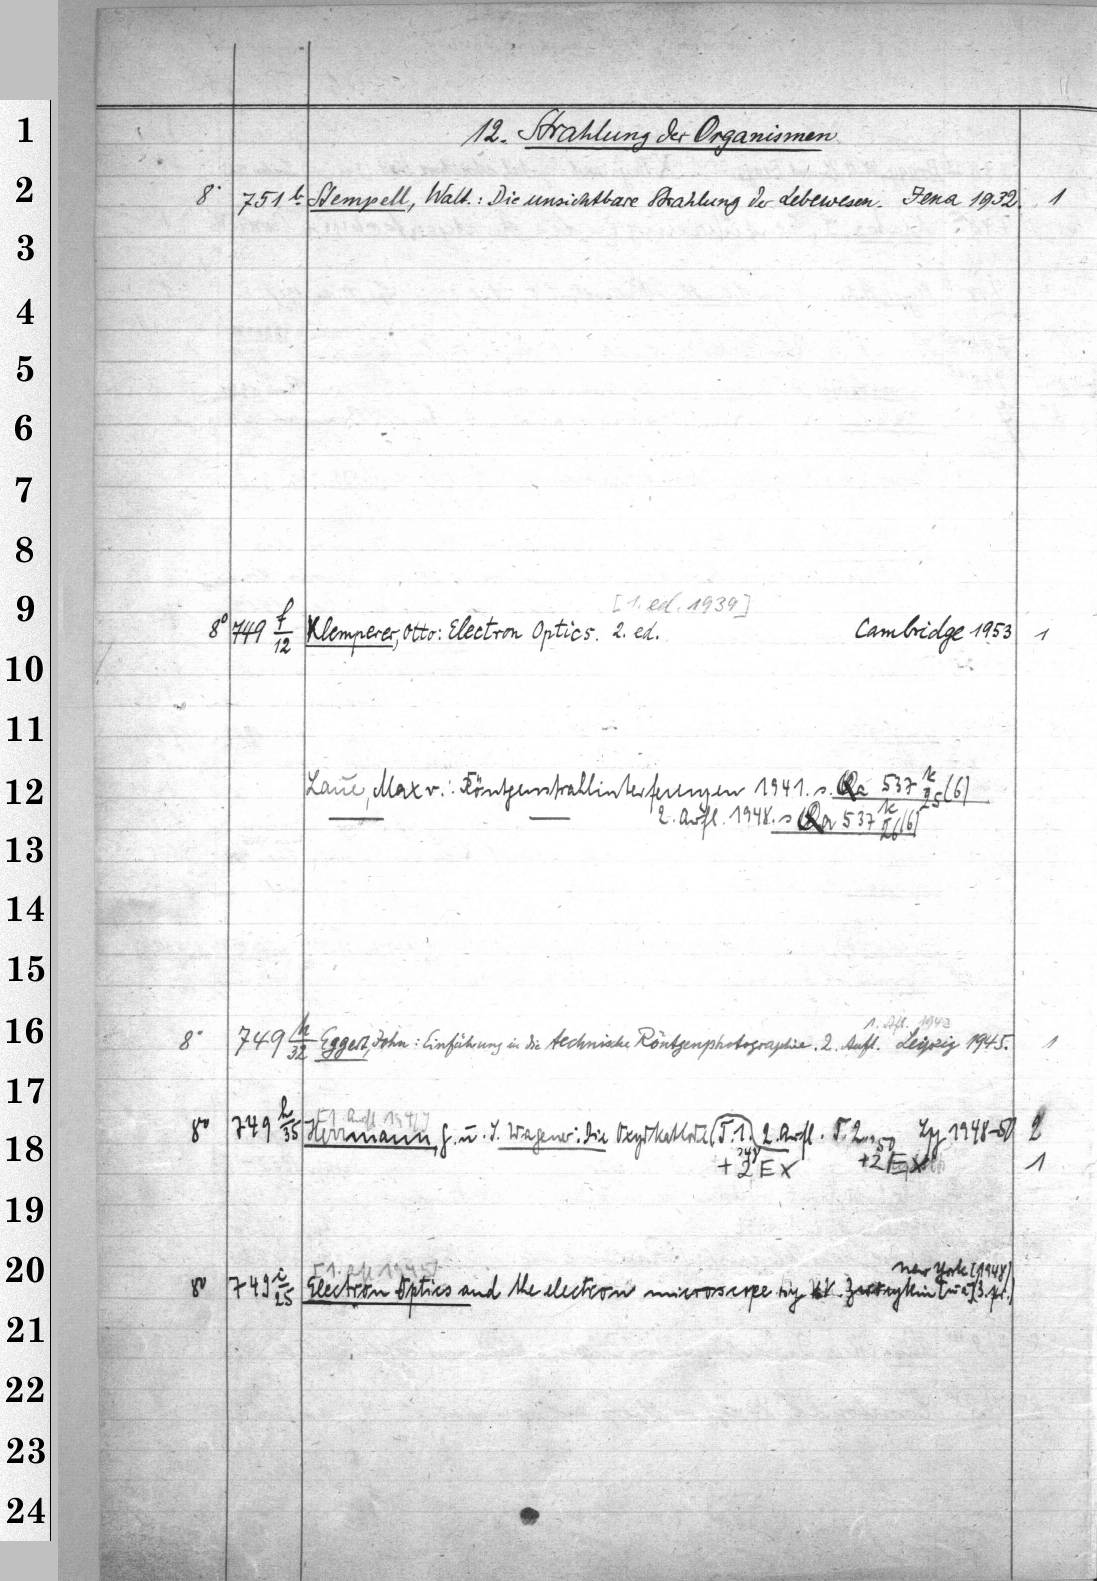 1
12. Strahlung der Organismen
2
8° 751 b Stempell, Walt.: Die unsichtbare Strahlung der Lebewesen. Jena 1932. 1
3
4
5
6
7
8
9
[1. ed. 1939]
8° 749 f/12 Klemperer, Otto: Electron Optics. 2. ed. Cambridge 1953 1
10
11
12
Laue, Max v.: Röntgenstrahlinterferenzen 1941. s. Qa 537 k/25 (6)
2. Aufl. 1948. s Qa 537 k/26 (6)
13
14
15
16
1. Afl. 1943
8° 749 h/32 Eggert, John: Einführung in die technische Röntgenphotographie. 2. Aufl. Leipzig 1945. 1
17
[1. Aufl 1944]
18
8° 749 h/35 Herrmann, G. u. S. Wagener: Die Oxydkathode (T. 1. 2. Aufl. T. 2 Lpz 1948-50 2
+2 Ex +2 Ex 1
19
20
New York [1948]
8° 749 i/25 Electron Optics and the electron microscope by Zworykin [u a] (3. pr.)
21
22
23
24